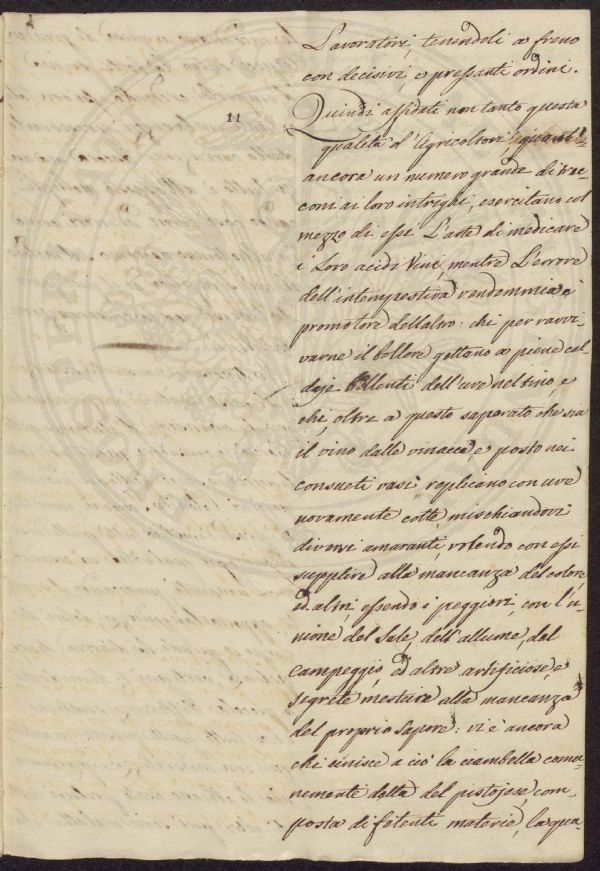 11
Lavoratori, tenendoli a freno
con decisivi, e pressanti ordini.
Quindi affidati non tanto questa
qualità d'Agricoltori, quant'
ancora un numero grande di
coni ai loro intrighi, esercitano col
mezzo di essi L'arte di medicare
i Loro acidi Vini, mentre L'errore
dell'intempestiva vendemmia è
promotore dell'altro: chi per ravvi-
varne il bollore gettano a piene cal-
daje bollenti dell'uve nel tino, e
chi, oltre a questo separato che sia
il vino dalle vinacce, e posto nei
consueti vasi replicano con uve
novamente cotte, mischiandovi
diversi amaranti, volendo con essi
supplire alla mancanza del colore,
ed altri, essendo i peggiori, con l'u-
nione del Sale, dell'allume, del
campeggio, ed altre artificiose, e
segrete mesture alla mancanza
del proprio Sapore: vi è ancora
chi unisce a ciò la ciambella comu-
nemente detta del pistojese, com-
posta di fetenti materie, la qua-